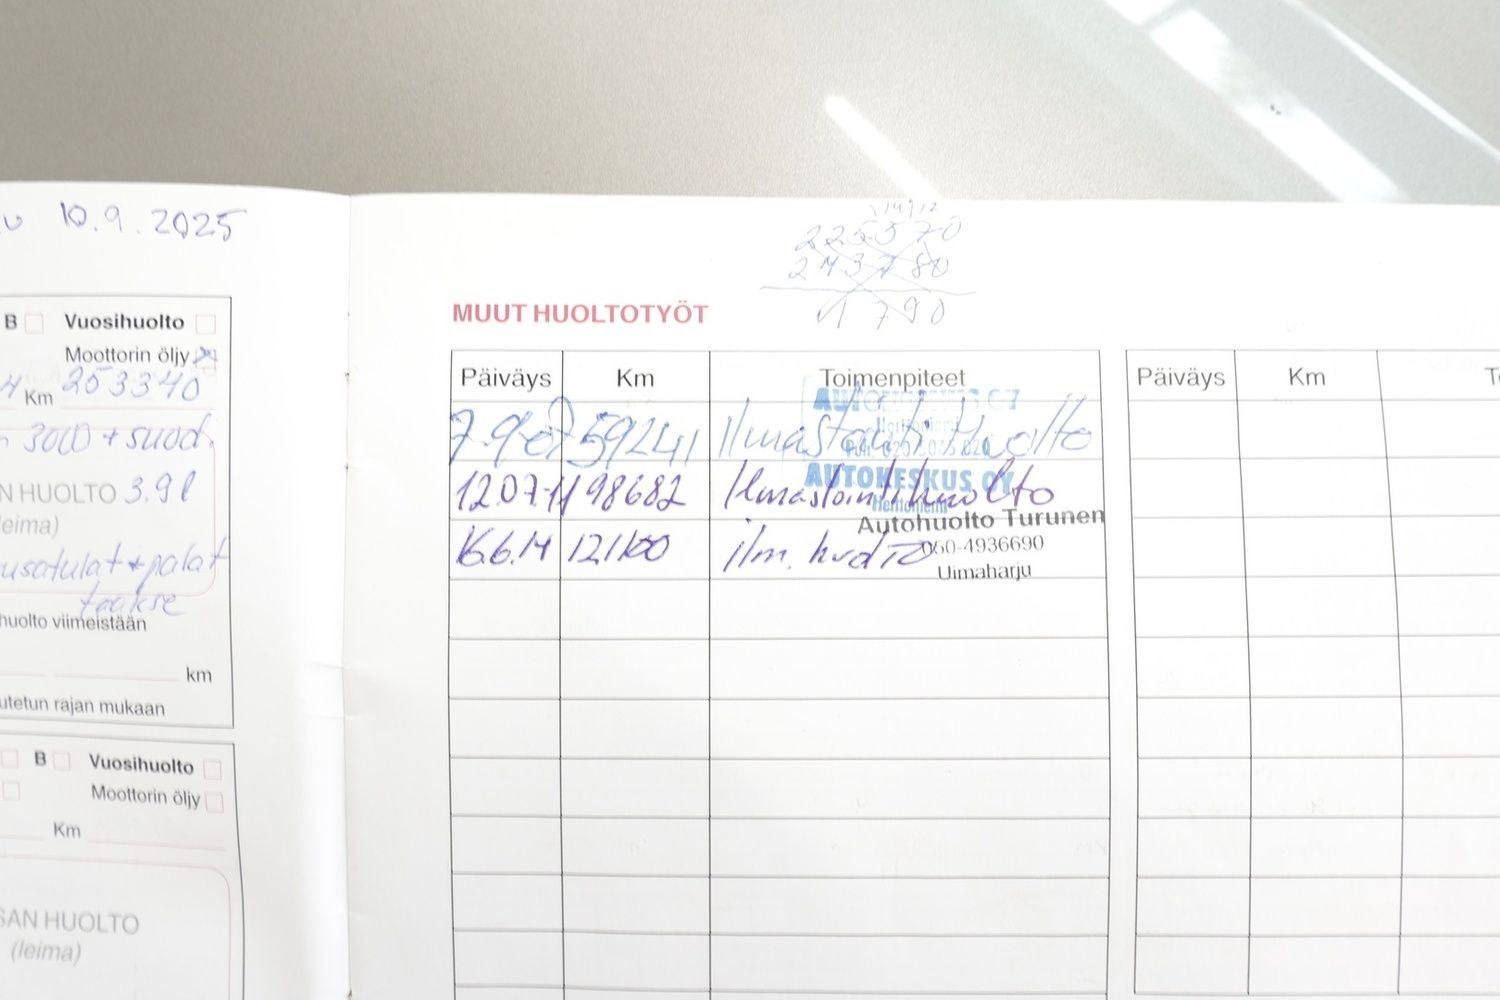 10.9.2025
B Vuosihuolto
Moottorin öljy
Km 253340
3000 + suod.
N HUOLTO 3.9 l
leima)
usatulat + palat
taakse
huolto viimeistään
km
utetun rajan mukaan
B Vuosihuolto
Moottorin öljy
Km
SAN HUOLTO
(leima)
225570
243780
1790
MUUT HUOLTOTYÖT
Päiväys Km Toimenpiteet
7.9.07 59241 Ilmastointihuolto
AUTOKESKUS OY
Herttoniemi
12.07.11 98682 Ilmastointihuolto
AUTOKESKUS OY
Herttoniemi
16.6.14 121100 ilm. huolto
Autohuolto Turunen
050-4936690
Uimaharju
Päiväys Km